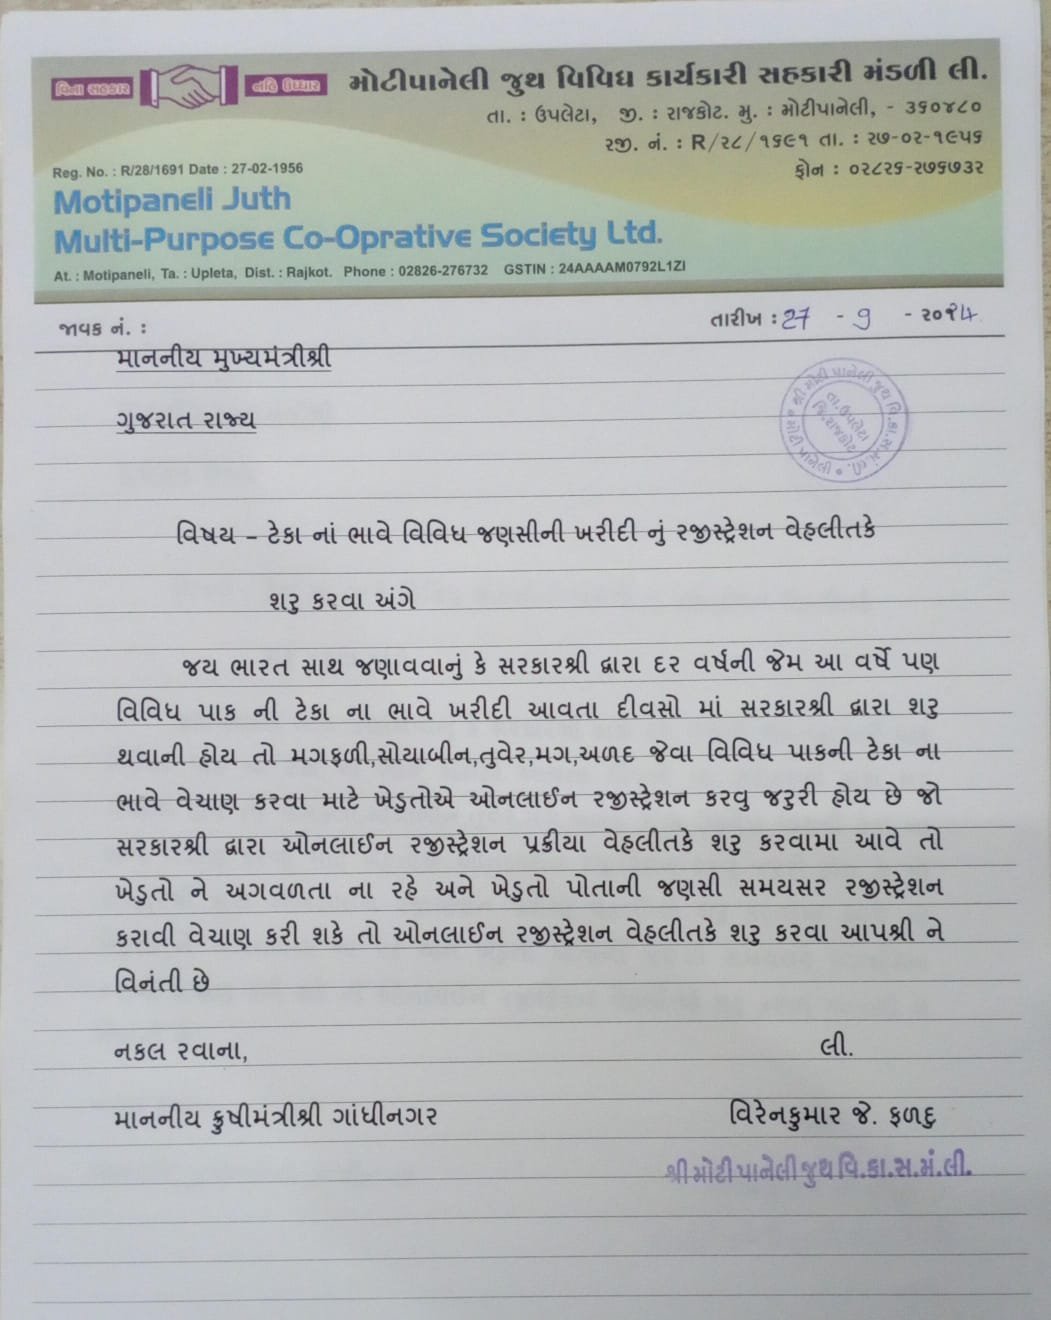 વિના સહકાર નહિ ઉધ્ધાર
મોટીપાનેલી જુથ વિવિધ કાર્યકારી સહકારી મંડળી લી.
તા. : ઉપલેટા, જી. : રાજકોટ. મુ. : મોટીપાનેલી, - ૩૬૦૪૮૦
રજી. નં. : R/૨૮/૧૬૯૧ તા. : ૨૭-૦૨-૧૯૫૬
ફોન : ૦૨૮૨૬-૨૭૬૭૩૨
Reg. No. : R/28/1691 Date : 27-02-1956
Motipaneli Juth
Multi-Purpose Co-Oprative Society Ltd.
At. : Motipaneli, Ta. : Upleta, Dist. : Rajkot. Phone : 02826-276732 GSTIN : 24AAAAM0792L1ZI
જાવક નં. :
તારીખ : 27 - 9 - ૨૦૨૪
માનનીય મુખ્યમંત્રીશ્રી
ગુજરાત રાજ્ય
શ્રી મોટી પાનેલી જુથ વિ.કા.સ.મં.લી.
તા.ઉપલેટા
જિ.રાજકોટ
વિષય – ટેકા નાં ભાવે વિવિધ જણસીની ખરીદી નું રજીસ્ટ્રેશન વેહલીતકે
શરુ કરવા અંગે
જય ભારત સાથ જણાવવાનું કે સરકારશ્રી દ્વારા દર વર્ષની જેમ આ વર્ષે પણ
વિવિધ પાક ની ટેકા ના ભાવે ખરીદી આવતા દીવસો માં સરકારશ્રી દ્વારા શરુ
થવાની હોય તો મગફળી,સોયાબીન,તુવેર,મગ,અળદ જેવા વિવિધ પાકની ટેકા ના
ભાવે વેચાણ કરવા માટે ખેડુતોએ ઓનલાઈન રજીસ્ટ્રેશન કરવુ જરુરી હોય છે જો
સરકારશ્રી દ્વારા ઓનલાઈન રજીસ્ટ્રેશન પ્રકીયા વેહલીતકે શરુ કરવામા આવે તો
ખેડુતો ને અગવળતા ના રહે અને ખેડુતો પોતાની જણસી સમયસર રજીસ્ટ્રેશન
કરાવી વેચાણ કરી શકે તો ઓનલાઈન રજીસ્ટ્રેશન વેહલીતકે શરુ કરવા આપશ્રી ને
વિનંતી છે
નકલ રવાના, લી.
માનનીય કૃષીમંત્રીશ્રી ગાંધીનગર વિરેનકુમાર જે. ફળદુ
શ્રી મોટી પાનેલી જુથ વિ.કા.સ.મં.લી.